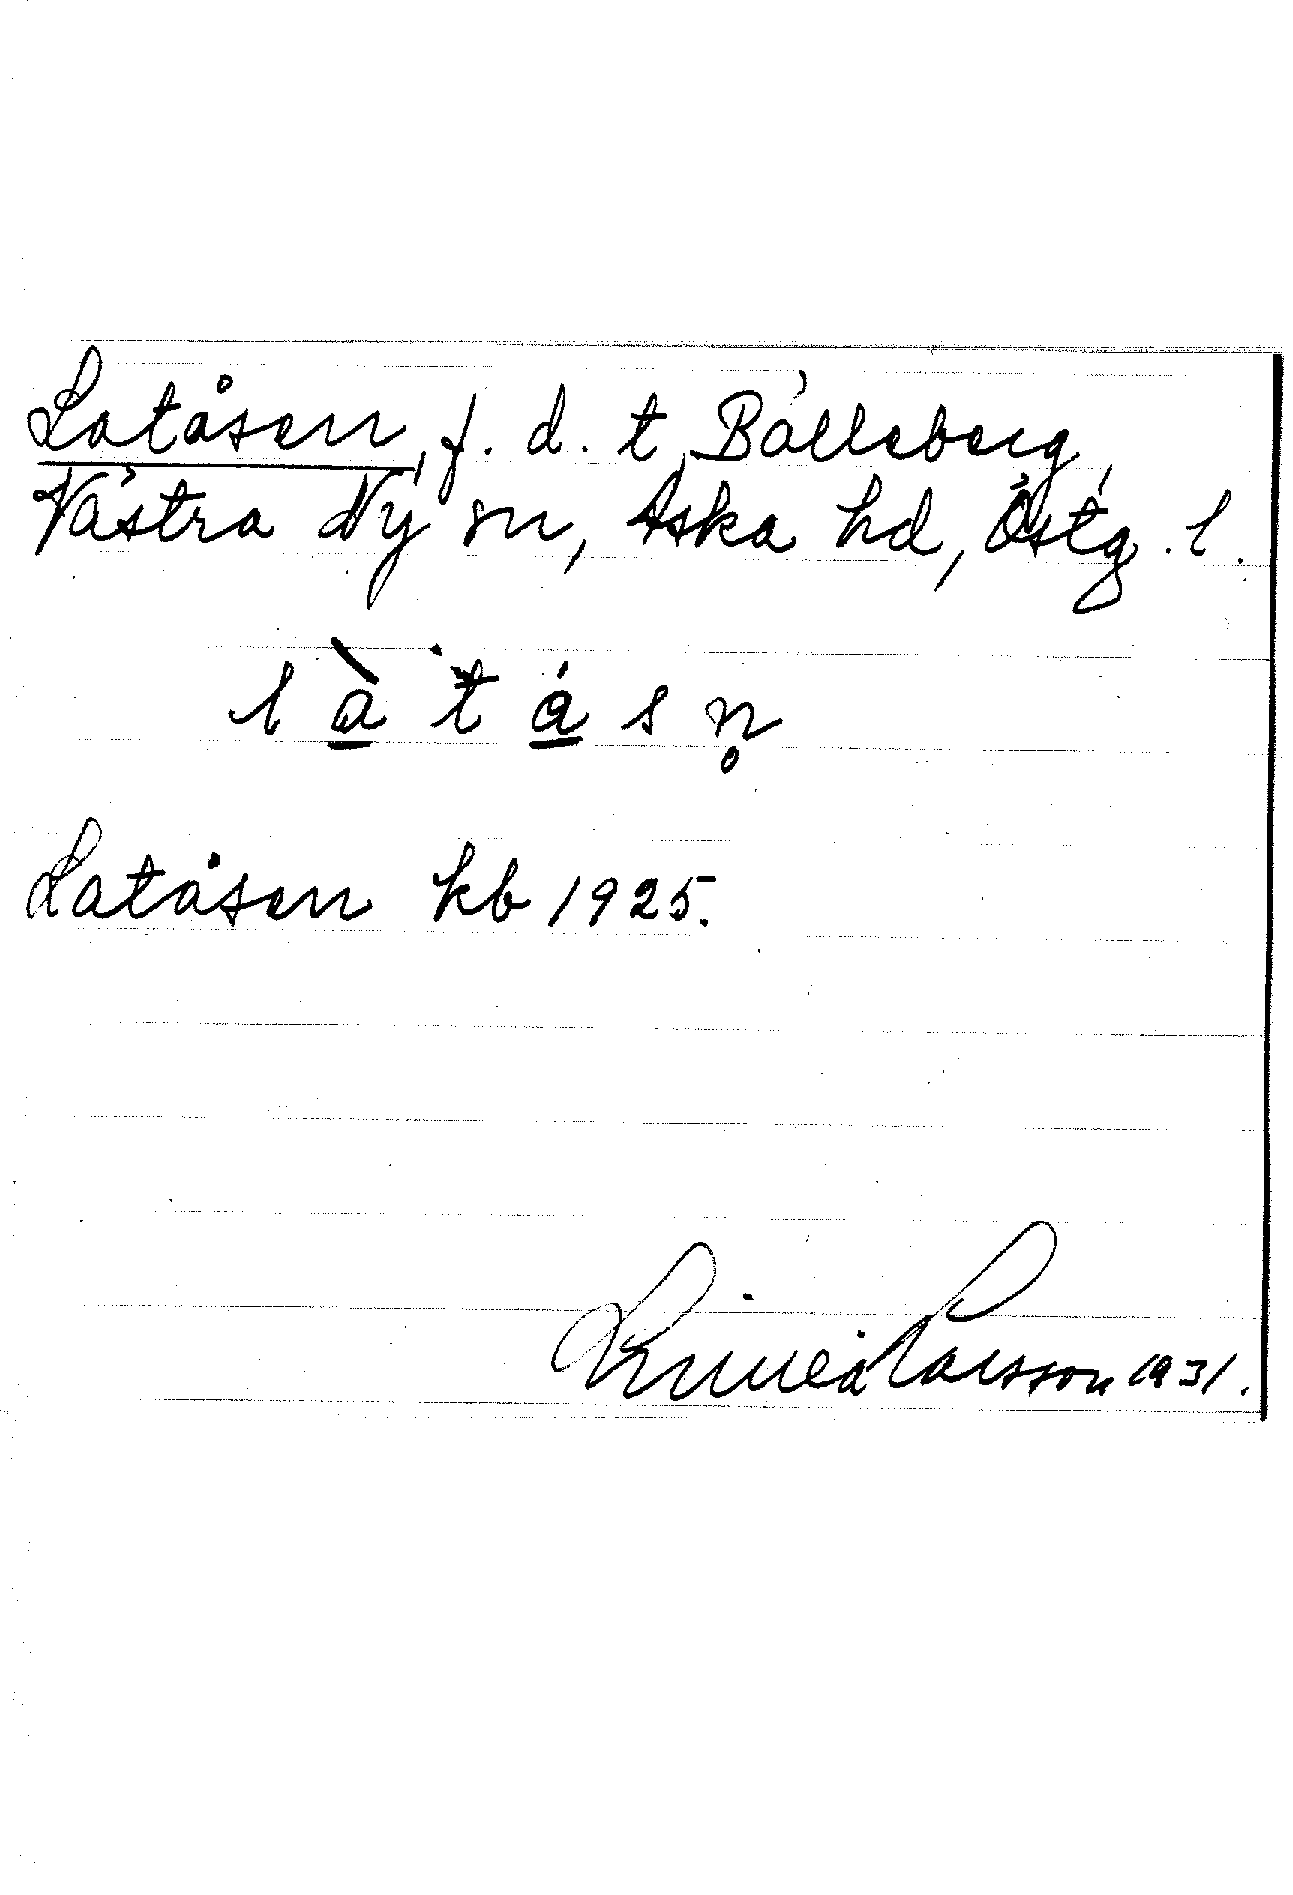 Latåsen, f. d. t, Bålleberg,
Västra Ny sn, Aska hd, Östg. l.
l à t å s n̥
Latåsen kb 1925.
Linnéa Larsson 1931.